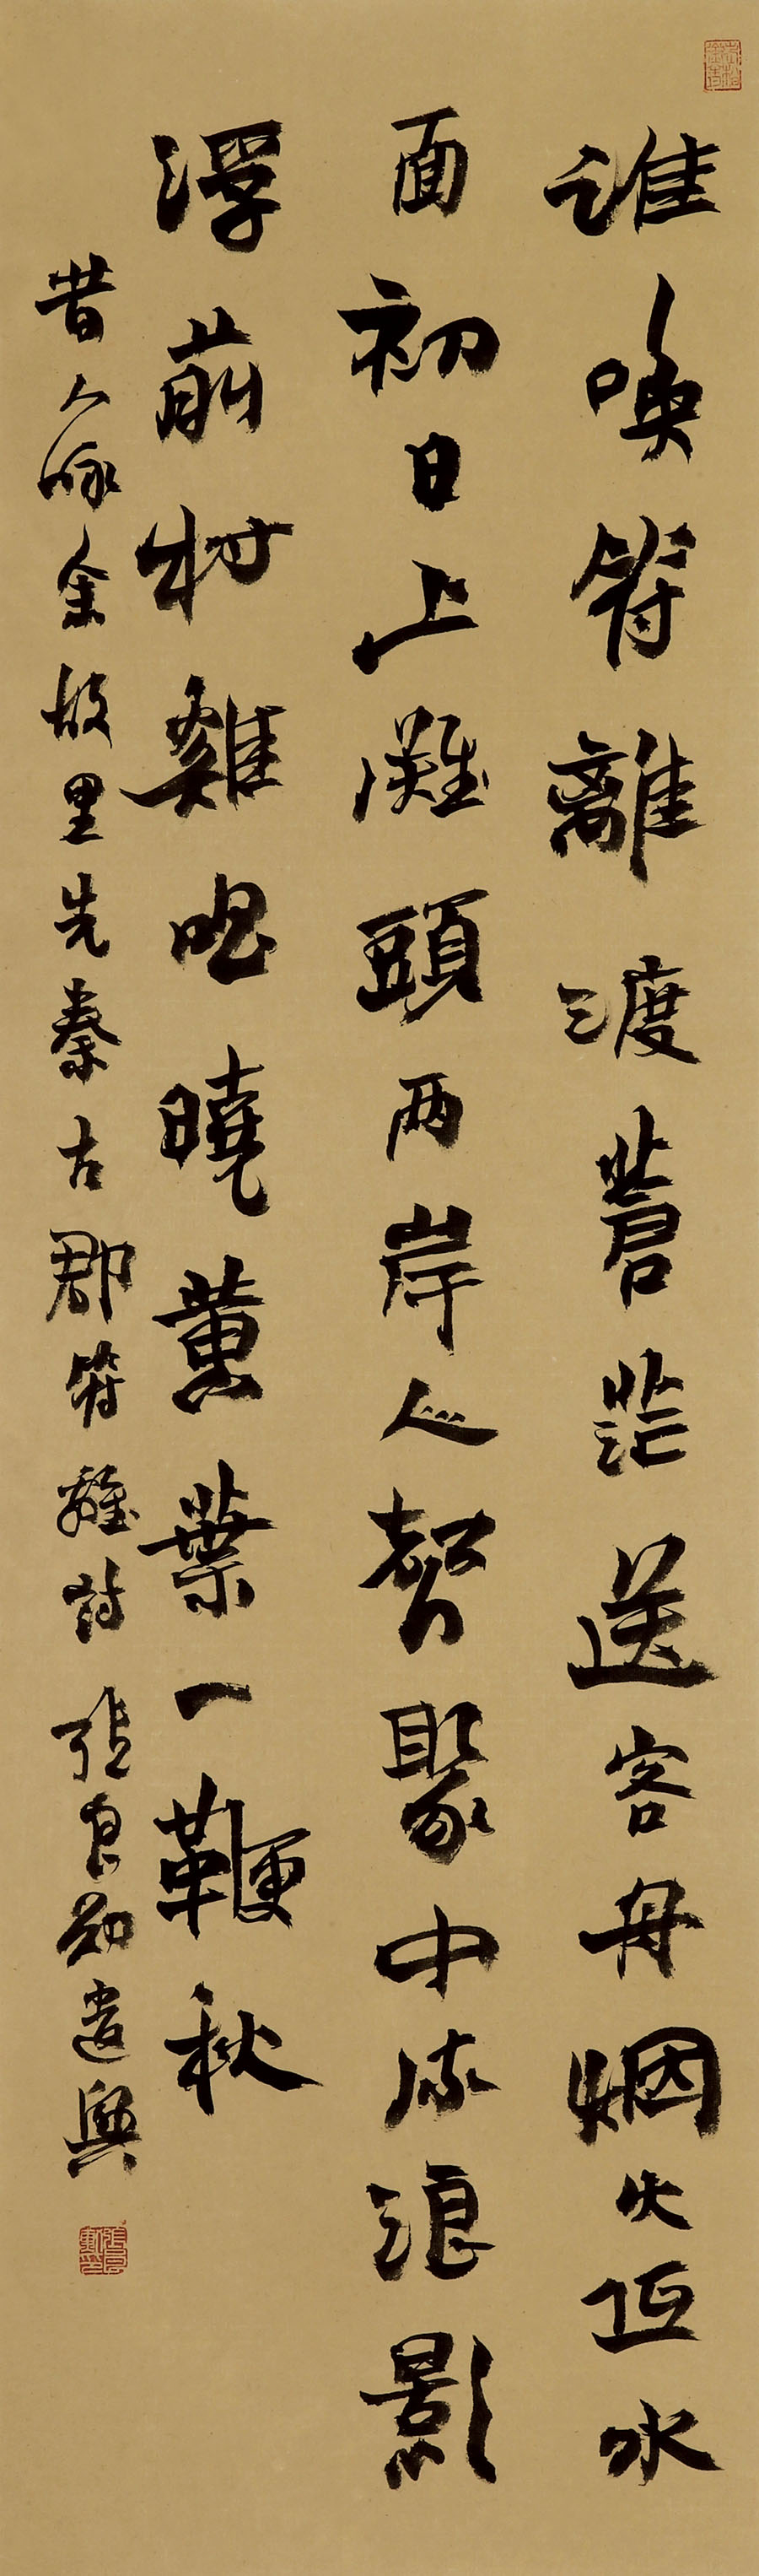 誰喚符離渡蒼茫送客舟烟火低水
面初日上灘頭两岸人聲聚中流浪影
浮前村雞唱曉黄葉一鞭秋
昔人咏余故里先秦古郡符離詩 張良勋遣興